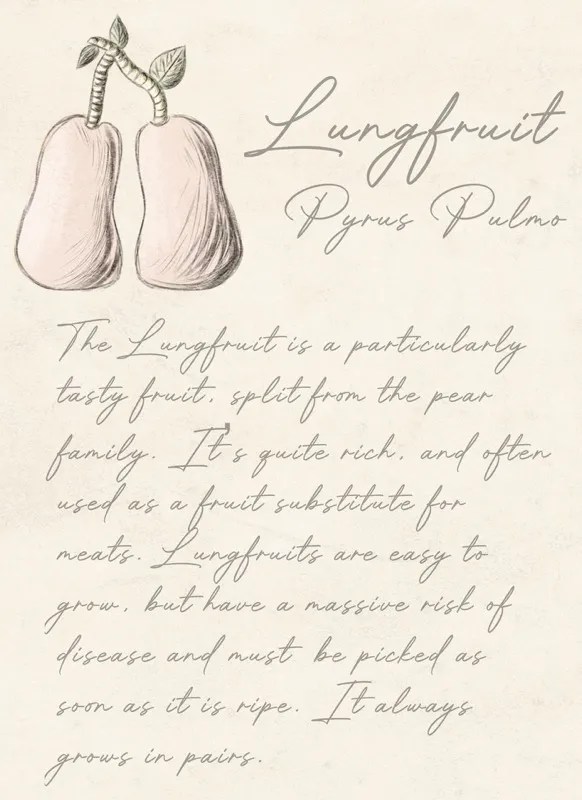 Lungfruit
Pyrus Pulmo
The Lungfruit is a particularly
tasty fruit, split from the pear
family. It's quite rich, and often
used as a fruit substitute for
meats. Lungfruits are easy to
grow, but have a massive risk of
disease and must be picked as
soon as it is ripe. It always
grows in pairs.